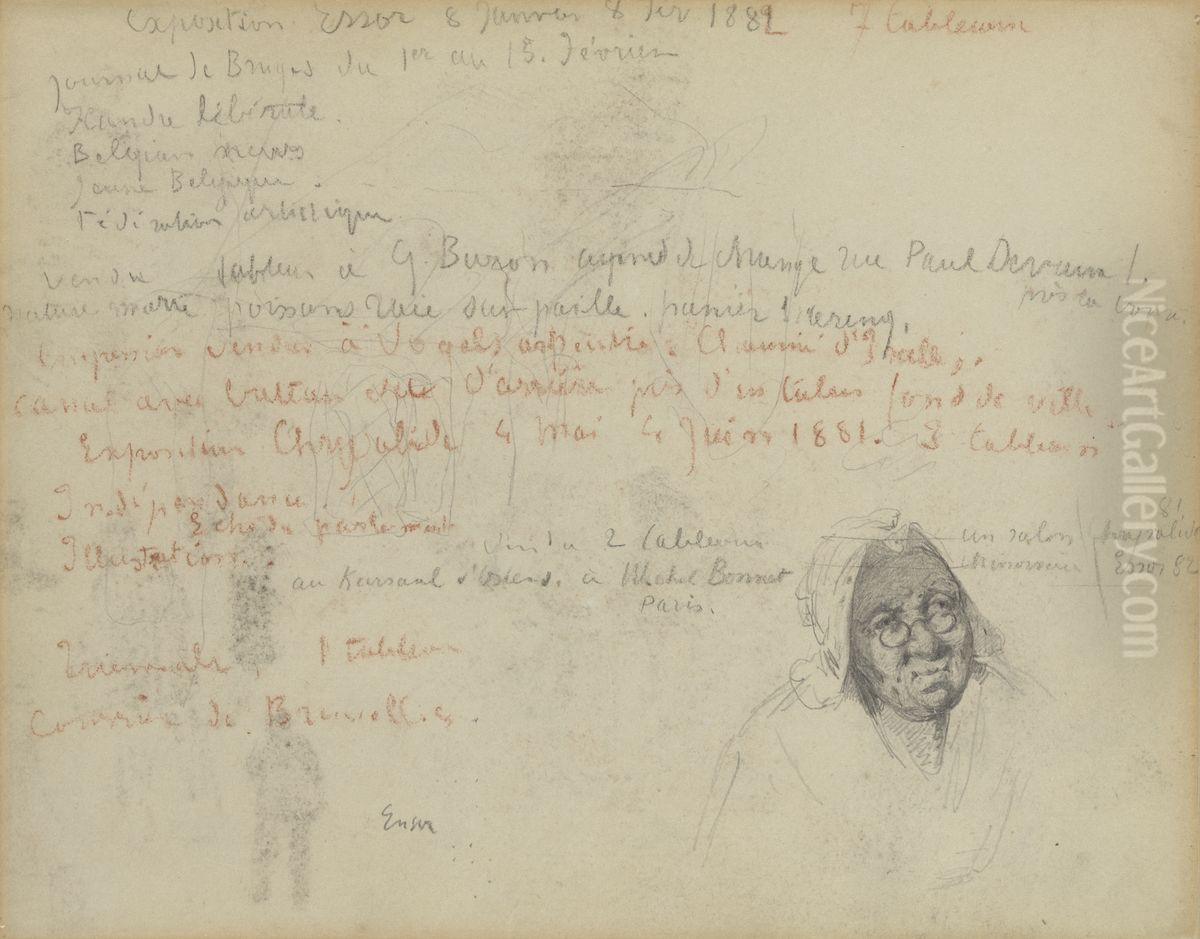 Exposition Essor 8 Janvier 8 fer 1882 7 tableaux
Journal de Bruges du 1er au 15. Février
Flandre libérale.
Belgian news
Jeune Belgique.
Fédération artistique
Vendu tableau à G. Buron agent de change rue Paul Devaux 1.
près la
nature morte poissons raie sur paille. panier hareng,
Impression vendue à Vogels
canal avec bateau d'arrière fond de ville
Exposition Chrysalide 4 Mai 4 Juin 1881. 3 tableaux
Indépendance
Echo du parlement
Illustration.
Vendu 2 tableaux
au Kursaal d'Ostende. à Michel Bonnet
Paris.
un salon
81
Chrysalide
Essor 82
Triennale, 1 tableau
Courrier de Bruxelles.
Ensor
NiceArtGallery.com